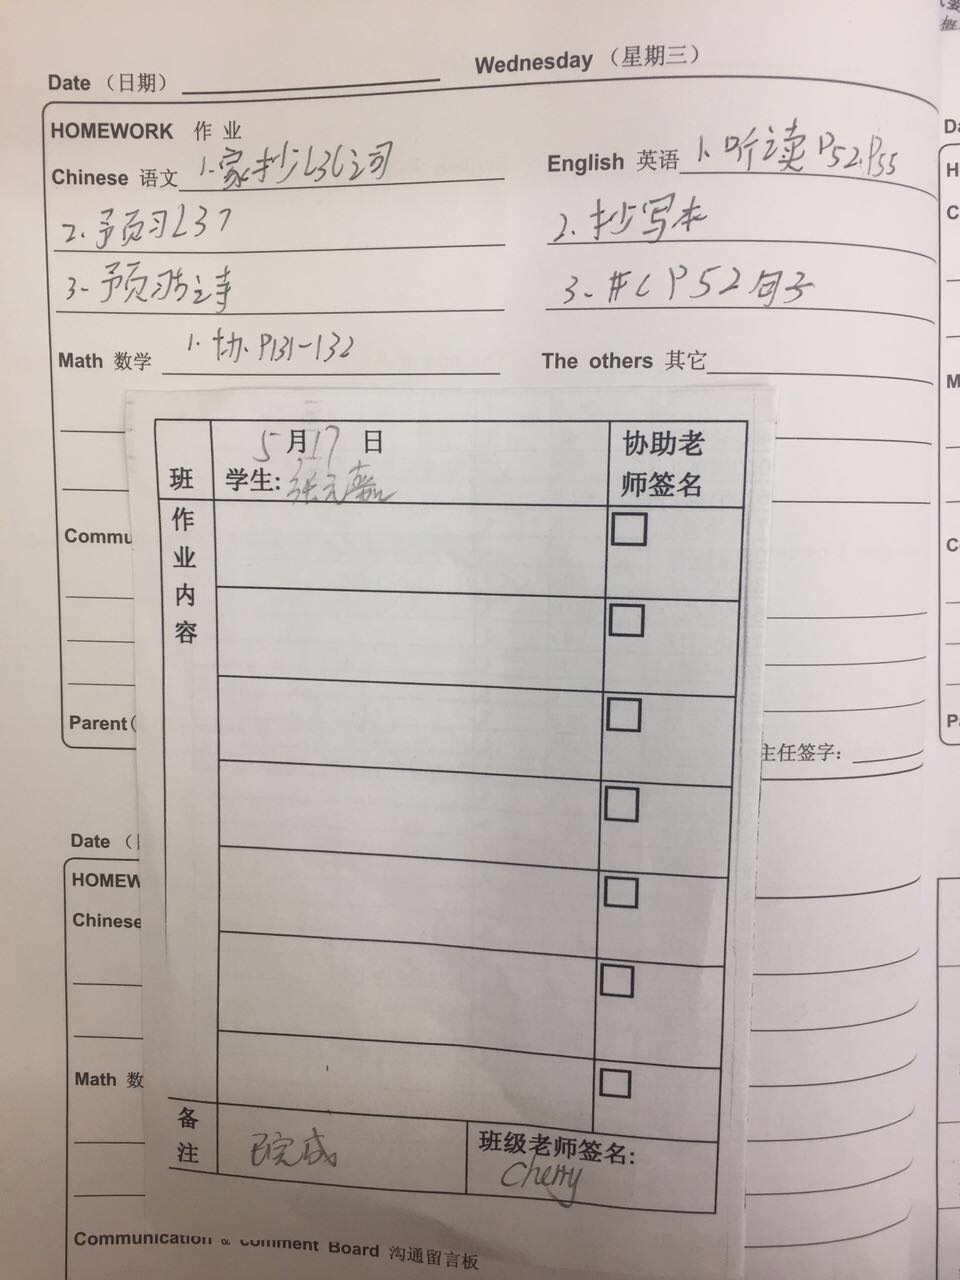 Date （日期） Wednesday （星期三）
HOMEWORK 作 业
Chinese 语文 1.家抄L36词
2.予页习L37
3.予页习
English 英语 1.听读P52.P55
2.抄写本
3. P52句子
Math 数学 1. P131-132
The others 其它
5月17日
班 学生:张元嘉
协助老
师签名
作
业
内
容
Commu
Parent(
主任签字:
Date （
HOMEW
Chinese
Math 数
备
注
已完成
班级老师签名:
Cherry
Communication & Comment Board 沟通留言板